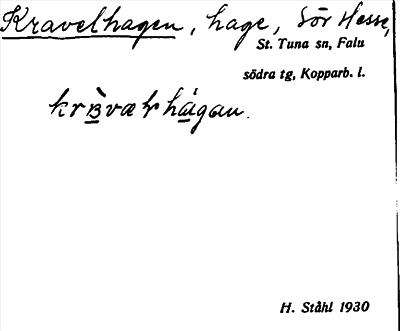 Kravelhagen, hage, Sör Hesse,
St. Tuna sn, Falu
södra tg, Kopparb. l.
H. Ståhl 1930